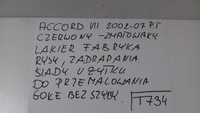 ACCORD VII 2002-07 P.T
CZERWONY - ZMATOWIAŁY
LAKIER FABRYKA
RYSY, ZADRAPANIA
ŚLADY UŻYTKU
DO PRZEMALOWANIA
GOŁE BEZ SZYBY. T734